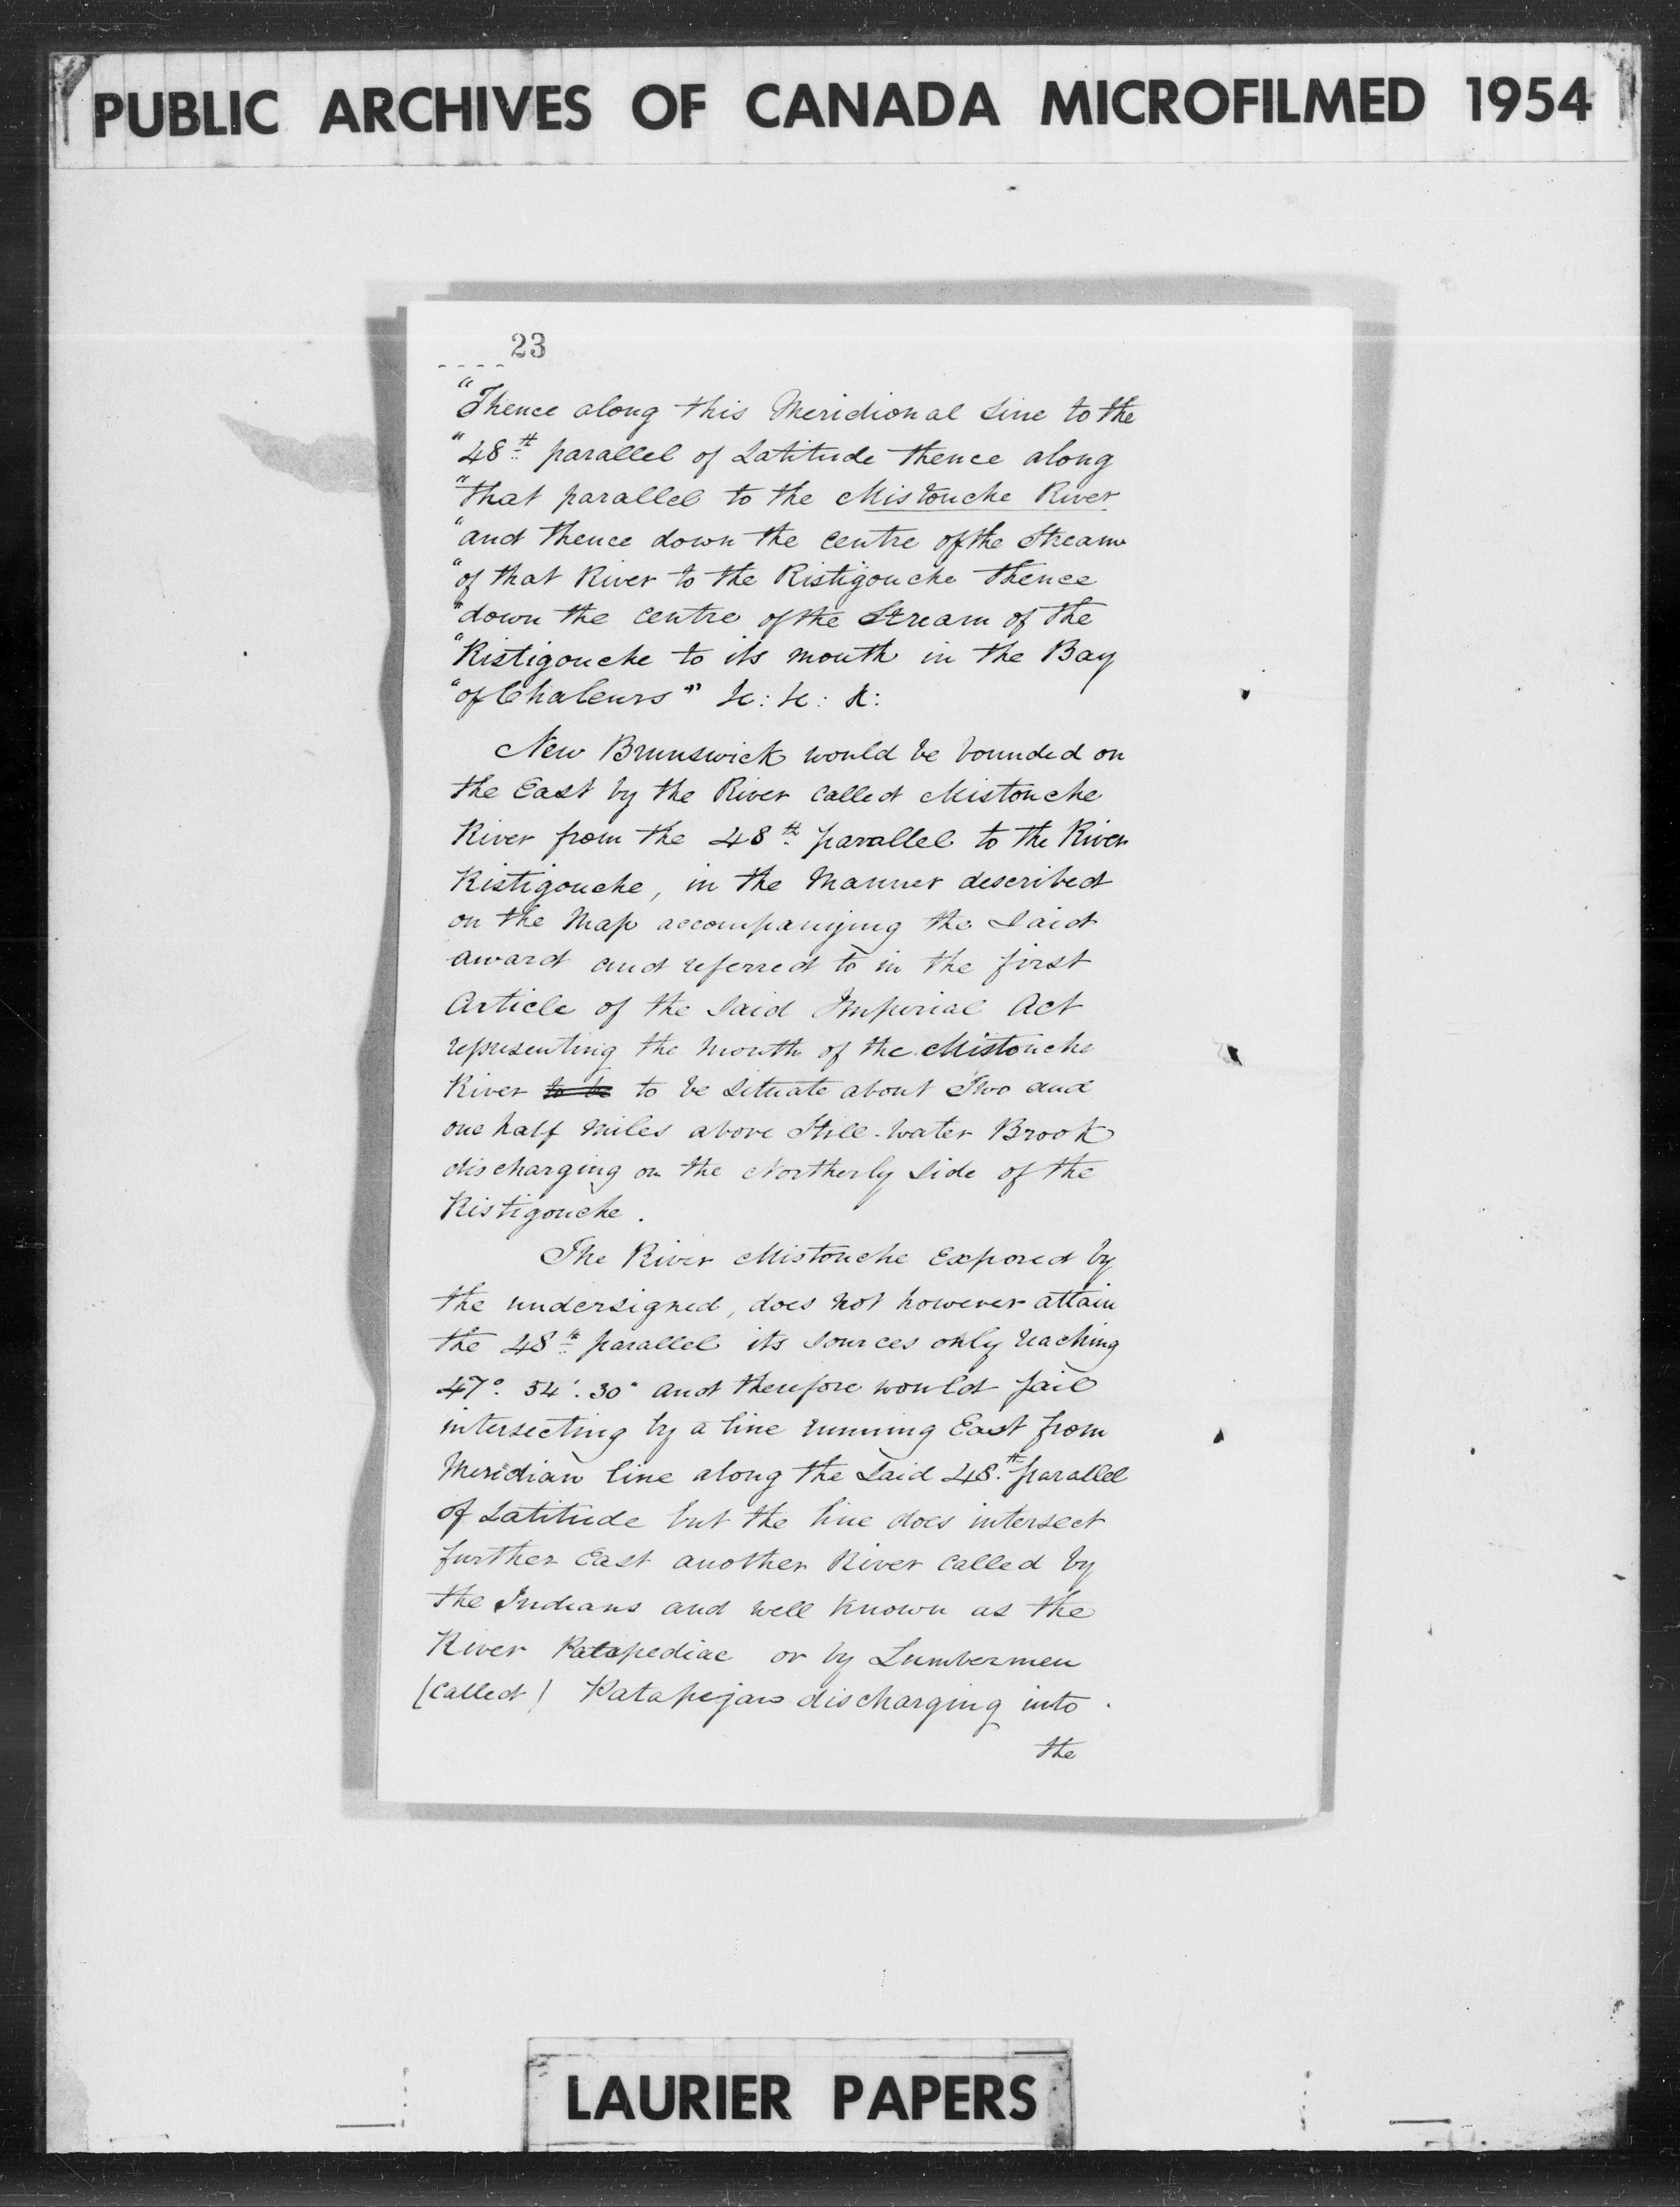 PUBLIC ARCHIVES OF CANADA MICROFILMED 1954
23
"Thence along this Meridional Line to the
"48th parallel of Latitude thence along
"that parallel to the Mistouche River
"and thence down the centre of the Stream
"of that River to the Ristigouche thence
"down the centre of the Stream of the
"Ristigouche to its mouth in the Bay
"of Chaleurs" &c: &c: &:
New Brunswick would be bounded on
the East by the River called Mistouche
River from the 48th parallel to the River
Ristigouche, in the Manner described
on the Map accompanying the Said
award and referred to in the first
Article of the Said Imperial Act
representing the Mouth of the Mistouche
River to be to be Situate about Two and
one half Miles above Still-water Brook
discharging on the Northerly Side of the
Ristigouche.
The River Mistouche Expored by
the undersigned, does not however attain
the 48th parallel its Sources only reaching
47° 54'. 30" and therefore would fail
intersecting by a line running East from
Meridian line along the Said 48th parallel
of Latitude but the line does intersect
further East another River called by
the Indians and well known as the
River Patapediac or by Lumbermen
(Called) Patapejaw discharging into
the
LAURIER PAPERS